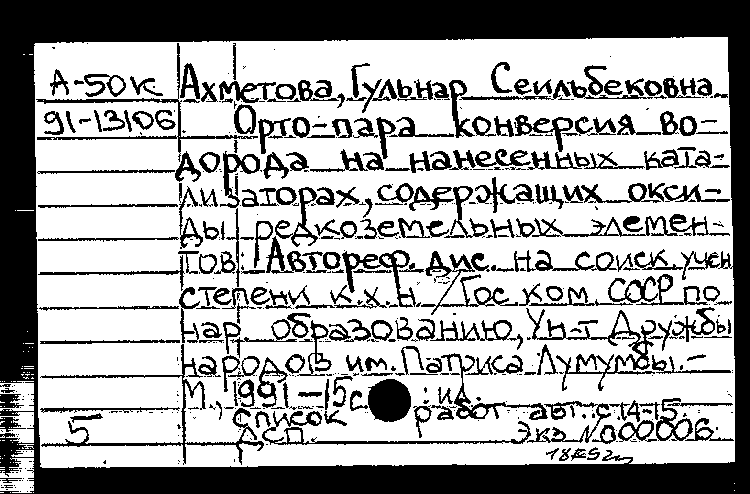 А-50к Ахметова, Гульнар Сеильбековна
91-13106 Орто-пара конверсия во-
дорода на нанесенных ката-
лизаторах, содержащих окси-
ды редкоземельных элемен-
тов: Автореф. дис. на соиск. учен
степени к.х.н. / Гос. ком. СССР по
нар. образованию, Ун-т Дружбы
народов им. Патриса Лумумбы. -
М., 1991 - 15с : ил.
Список работ авт.: с 14-15.
5 ДСП Экз N 000006